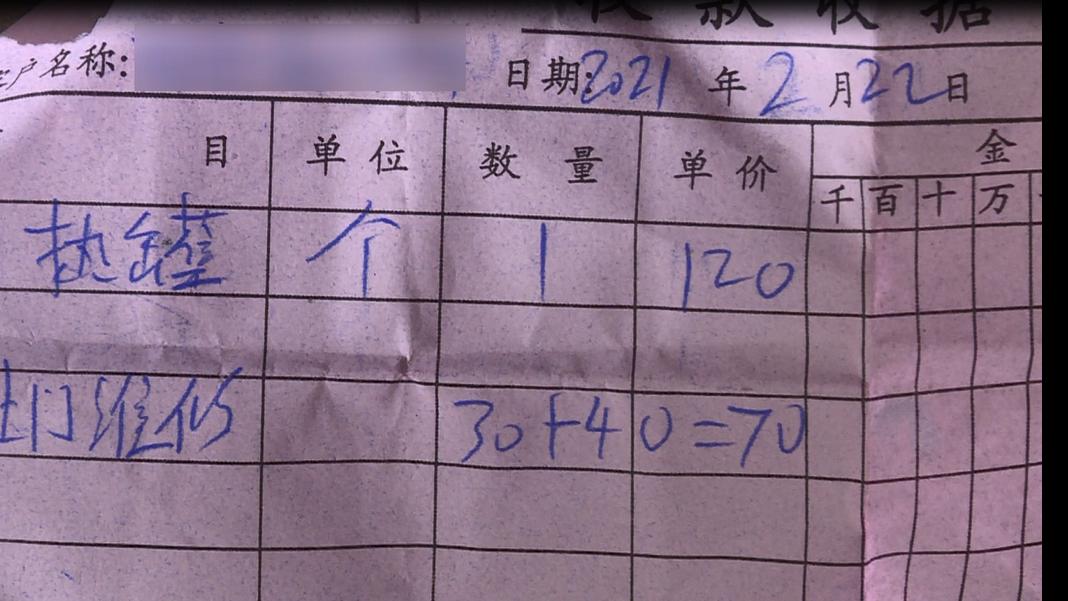 收款收据
客户名称: 日期:2021年2月22日
目 单位 数量 单价 金
千 百 十 万
热罐 个 1 120
上门维修 30+40=70